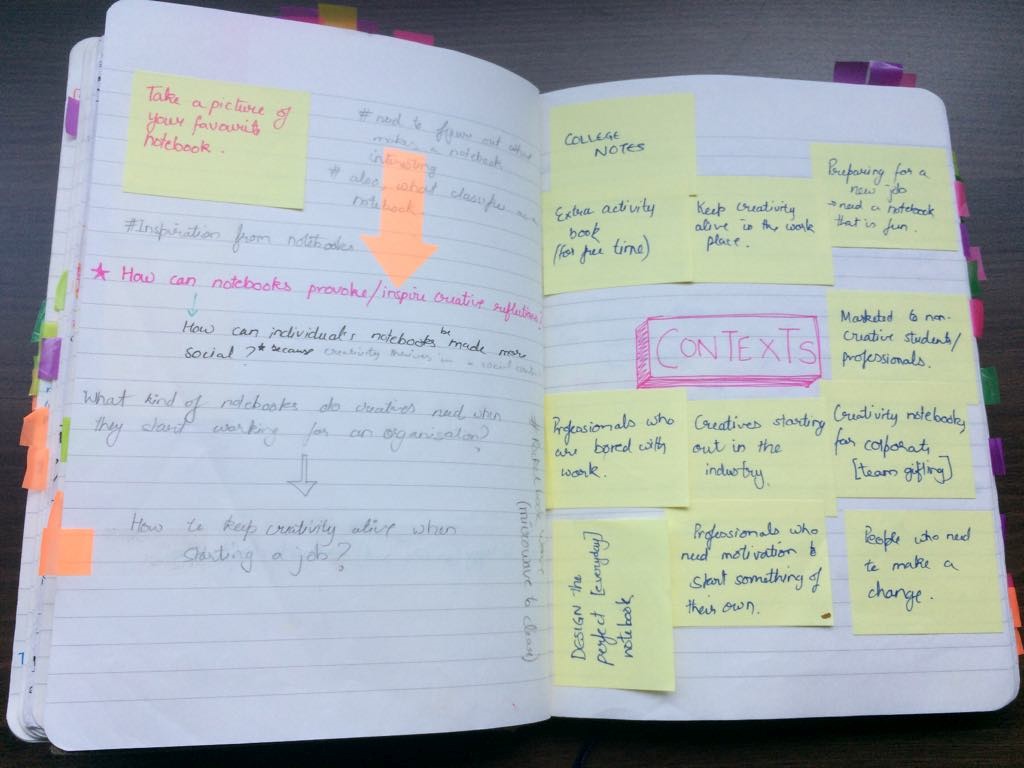 Take a picture of
your favourite
notebook.
# need to figure out what
makes a notebook
interesting
# also, what classifies as a
notebook.
#Inspiration from notebooks
★ How can notebooks provoke/inspire creative reflections?
How can individual's notebooks be made more
social ? * because creativity thrives in a social
What kind of notebooks do creatives need when
they start working for an organisation?
How to keep creativity alive when
starting a job?
(microwave to clean)
COLLEGE
NOTES
Extra activity
book
(for free time)
Keep creativity
alive in the work
place.
Preparing for a
new job
→ need a notebook
that is fun.
CONTEXTS
Marketed to non-
creative students/
professionals.
Professionals who
are bored with
work.
Creatives starting
out in the
industry.
Creativity notebooks
for corporate
[team gifting]
DESIGN the
perfect [everyday]
notebook
Professionals who
need motivation to
start something of
their own.
People who need
to make a
change.